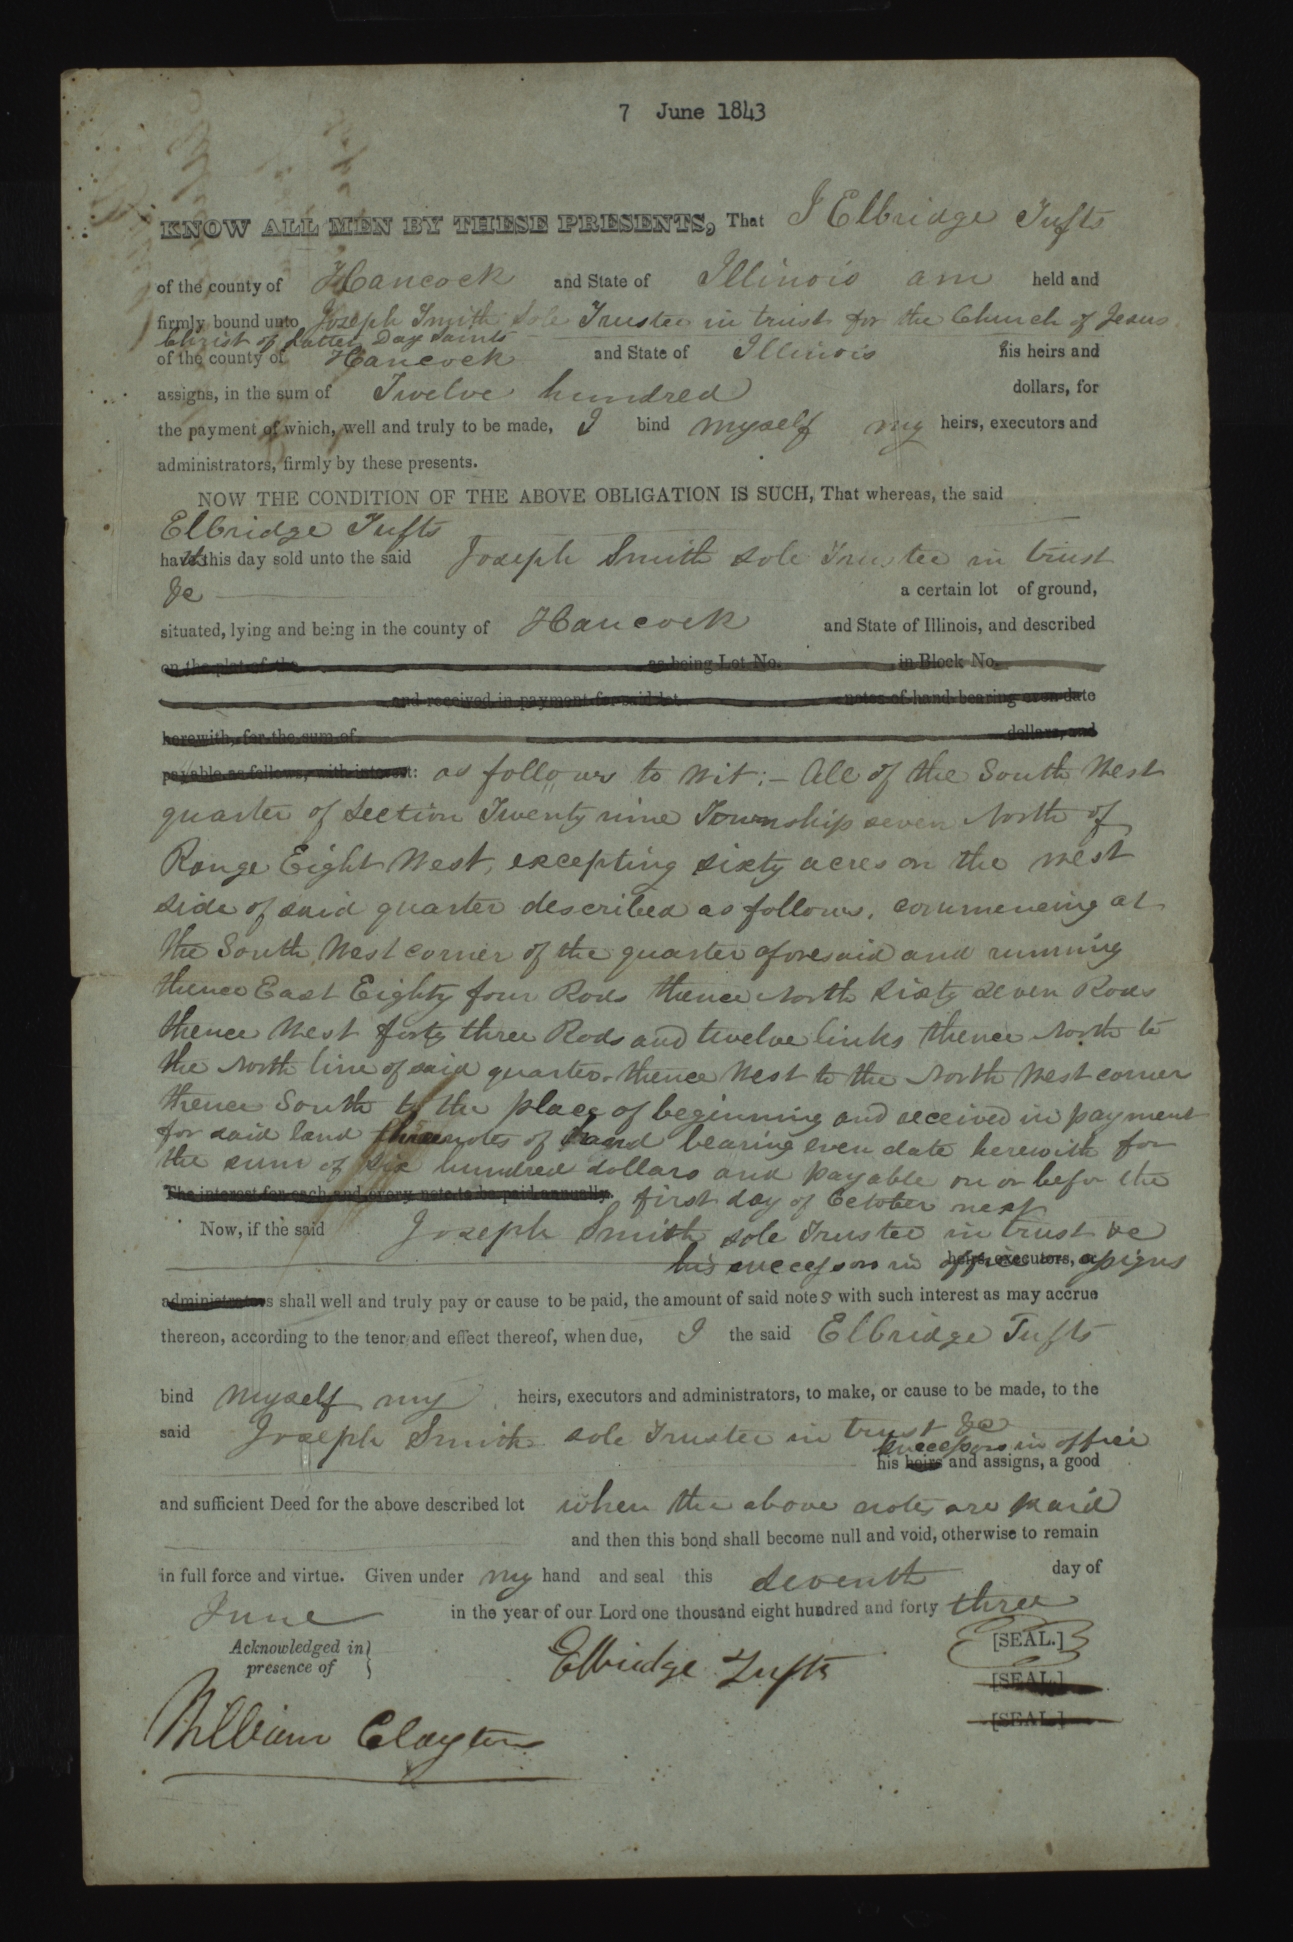 7 June 1843
KNOW ALL MEN BY THESE PRESENTS, That I Elbridge Tufts
of the county of Hancock and State of Illinois am held and
firmly bound unto Joseph Smith Sole Trustee in trust for the Church of Jesus
Christ of Latter Day Saints
of the county of Hancock and State of Illinois his heirs and
assigns, in the sum of Twelve hundred dollars, for
the payment of which, well and truly to be made, I bind myself my heirs, executors and
administrators, firmly by these presents.
NOW THE CONDITION OF THE ABOVE OBLIGATION IS SUCH, That whereas, the said
Elbridge Tufts
hath this day sold unto the said Joseph Smith sole Trustee in trust
&c a certain lot of ground,
situated, lying and being in the county of Hancock and State of Illinois, and described
on the plat of the as being Lot No. in Block No.
and received in payment for said lot notes of hand bearing even date
herewith, for the sum of dollars, and
payable as follows, with interest: as follows to wit:- All of the South West
quarter of Section Twenty nine Township seven North of
Range Eight West, excepting sixty acres on the west
side of said quarter described as follows, commencing at
the South West corner of the quarter aforesaid and running
thence East Eighty four Rods thence North sixty seven Rods
thence West forty three Rods and twelve links thence North to
the North line of said quarter, thence West to the North West corner
thence South to the place of beginning and received in payment
for said land three notes of hand bearing even date herewith for
the sum of six hundred dollars and payable on or befor the
The interest for each and every note to be paid annually. first day of October next
Now, if the said Joseph Smith sole Trustee in trust &c
his successors in office or assigns heirs, executors, or
administrators shall well and truly pay or cause to be paid, the amount of said notes with such interest as may accrue
thereon, according to the tenor and effect thereof, when due, I the said Elbridge Tufts
bind myself my heirs, executors and administrators, to make, or cause to be made, to the
said Joseph Smith sole Trustee in trust &c
successors in office
his heirs and assigns, a good
and sufficient Deed for the above described lot when the above notes are paid
and then this bond shall become null and void, otherwise to remain
in full force and virtue. Given under my hand and seal this seventh day of
June in the year of our Lord one thousand eight hundred and forty three
Acknowledged in presence of Elbridge Tufts [SEAL.]
[SEAL.]
[SEAL.]
William Clayton